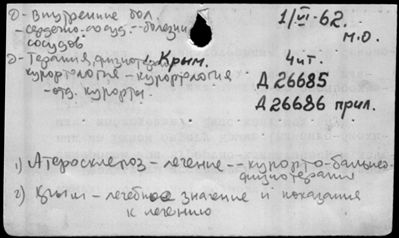 д- Внутренние бол.
1/VI-62.
- сердечно-сосуд. - болезни
м.о.
сосудов
д- Терапия, физиотер. Крым.
4 чит.
курортология - курортология
Д 26685
- отд. курорты
Д 26686 прил.
1) Атеросклероз - лечение -- курорто-бальнео-
физиотерапия
2) Крым - лечебное значение и показания
к лечению